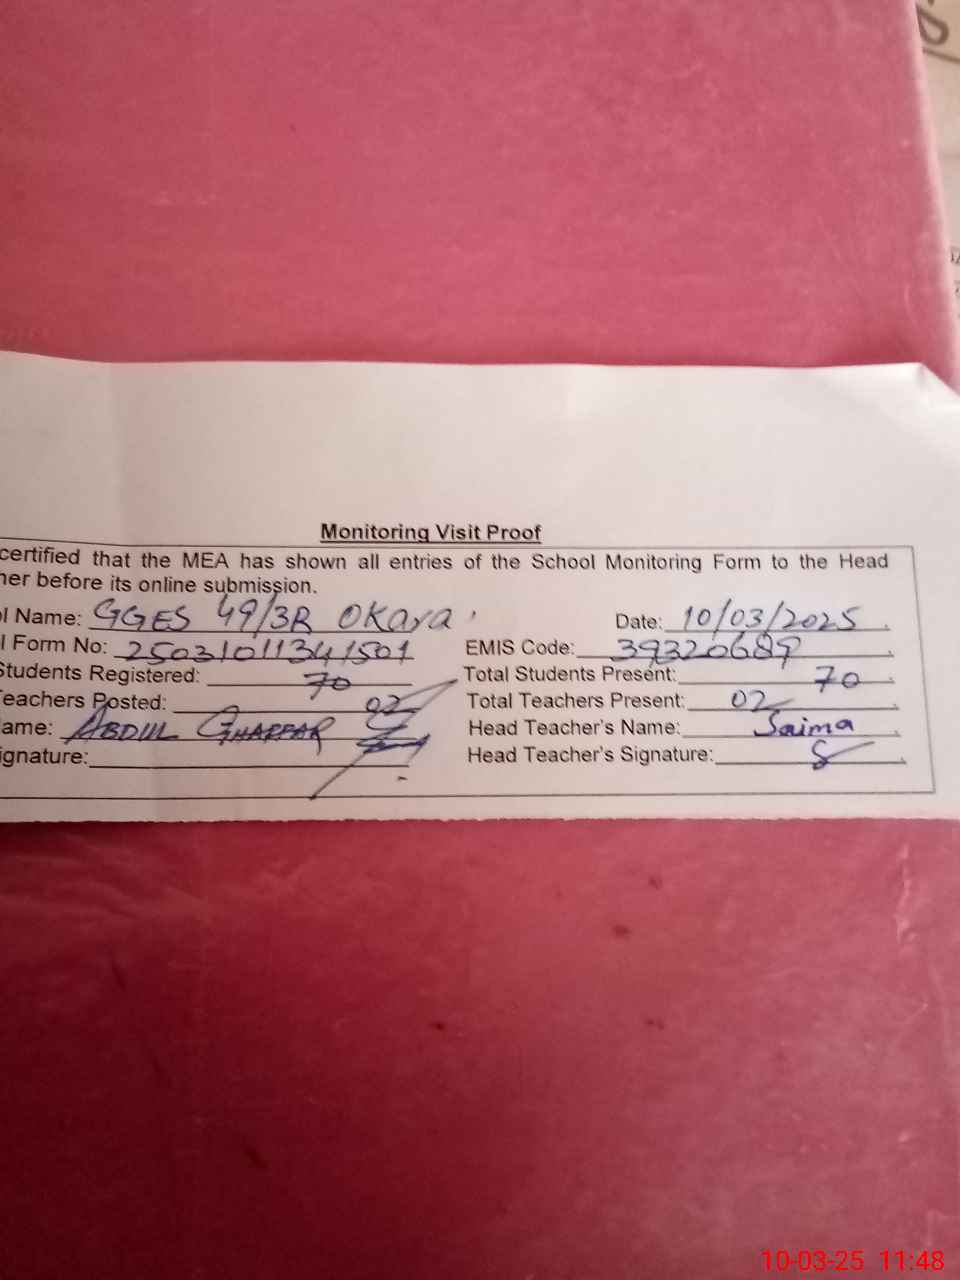 Monitoring Visit Proof
certified that the MEA has shown all entries of the School Monitoring Form to the Head
her before its online submission.
ol Name: GGES 49/3R Okara Date: 10/03/2025
l Form No: 25031011341501 EMIS Code: 39320689
Students Registered: 70 Total Students Present: 70
Teachers Posted: 02 Total Teachers Present: 02
ame: ABDUL GHAFFAR Head Teacher's Name: Saima
ignature: Head Teacher's Signature:
10-03-25 11:48